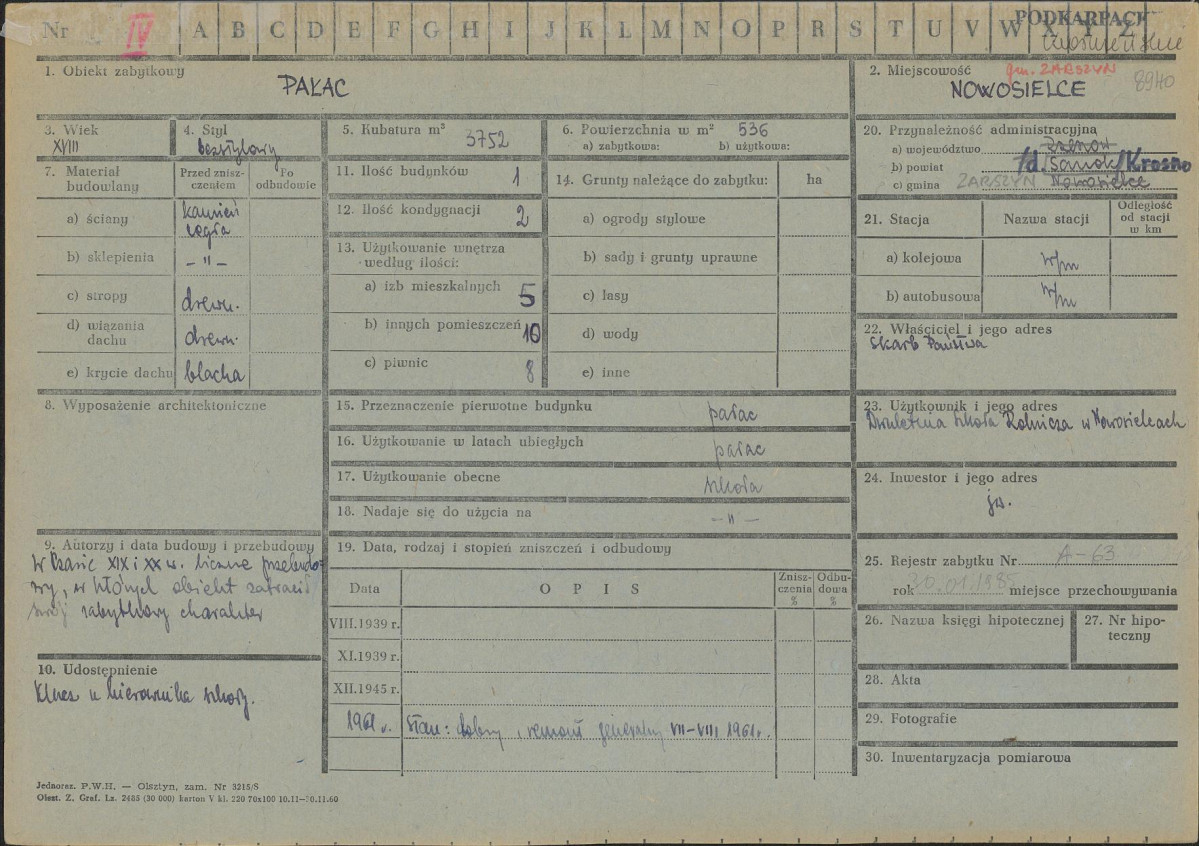 Nr IV A B C D E F G H I J K L M N O P R S T U V W X Y Z
PODKARPACK
1. Obiekt zabytkowy
PAŁAC
2. Miejscowość gm. ZARSZYN 8940
NOWOSIELCE
3. Wiek
XVIII
4. Styl
bezstylowy
5. Kubatura m³ 3752
6. Powierzchnia w m² 536
a) zabytkowa: b) użytkowa:
7. Materiał budowlany
Przed zniszczeniem
Po odbudowie
a) ściany kamień cegła
b) sklepienia -"-
c) stropy drewn.
d) wiązania dachu drewn.
e) krycie dachu blacha
8. Wyposażenie architektoniczne
9. Autorzy i data budowy i przebudowy
W czasie XIX i XX w. liczne przebudo-
wy, w których obiekt zatracił
swój zabytkowy charakter
10. Udostępnienie
Klucz u kierownika szkoły.
11. Ilość budynków 1
12. Ilość kondygnacji 2
13. Użytkowanie wnętrza
według ilości:
a) izb mieszkalnych 5
b) innych pomieszczeń 10
c) piwnic 8
14. Grunty należące do zabytku: ha
a) ogrody stylowe
b) sady i grunty uprawne
c) lasy
d) wody
e) inne
15. Przeznaczenie pierwotne budynku pałac
16. Użytkowanie w latach ubiegłych pałac
17. Użytkowanie obecne szkoła
18. Nadaje się do użycia na -"-
19. Data, rodzaj i stopień zniszczeń i odbudowy
Data OPIS Zniszczenia % Odbudowa %
VIII.1939 r.
XI.1939 r.
XII.1945 r.
1961 r. Stan: dobry, remont generalny VII-VIII 1961 r.
20. Przynależność administracyjną
a) województwo Rzeszów
b) powiat /d. Sanok/Krosno
c) gmina ZARSZYN Nowosielce
21. Stacja Nazwa stacji Odległość od stacji w km
a) kolejowa w/m
b) autobusowa w/m
22. Właściciel i jego adres
Skarb Państwa
23. Użytkownik i jego adres
Dwuletnia Szkoła Rolnicza w Nowosielcach
24. Inwestor i jego adres
jw.
25. Rejestr zabytku Nr A-63
rok 30.01.1985 miejsce przechowywania
26. Nazwa księgi hipotecznej
27. Nr hipo-
teczny
28. Akta
29. Fotografie
30. Inwentaryzacja pomiarowa
Jednoraz. P.W.H. — Olsztyn, zam. Nr 3215/S
Olszt. Z. Graf. Lz. 2485 (30 000) karton V kl. 220 70x100 10.11—30.11.60